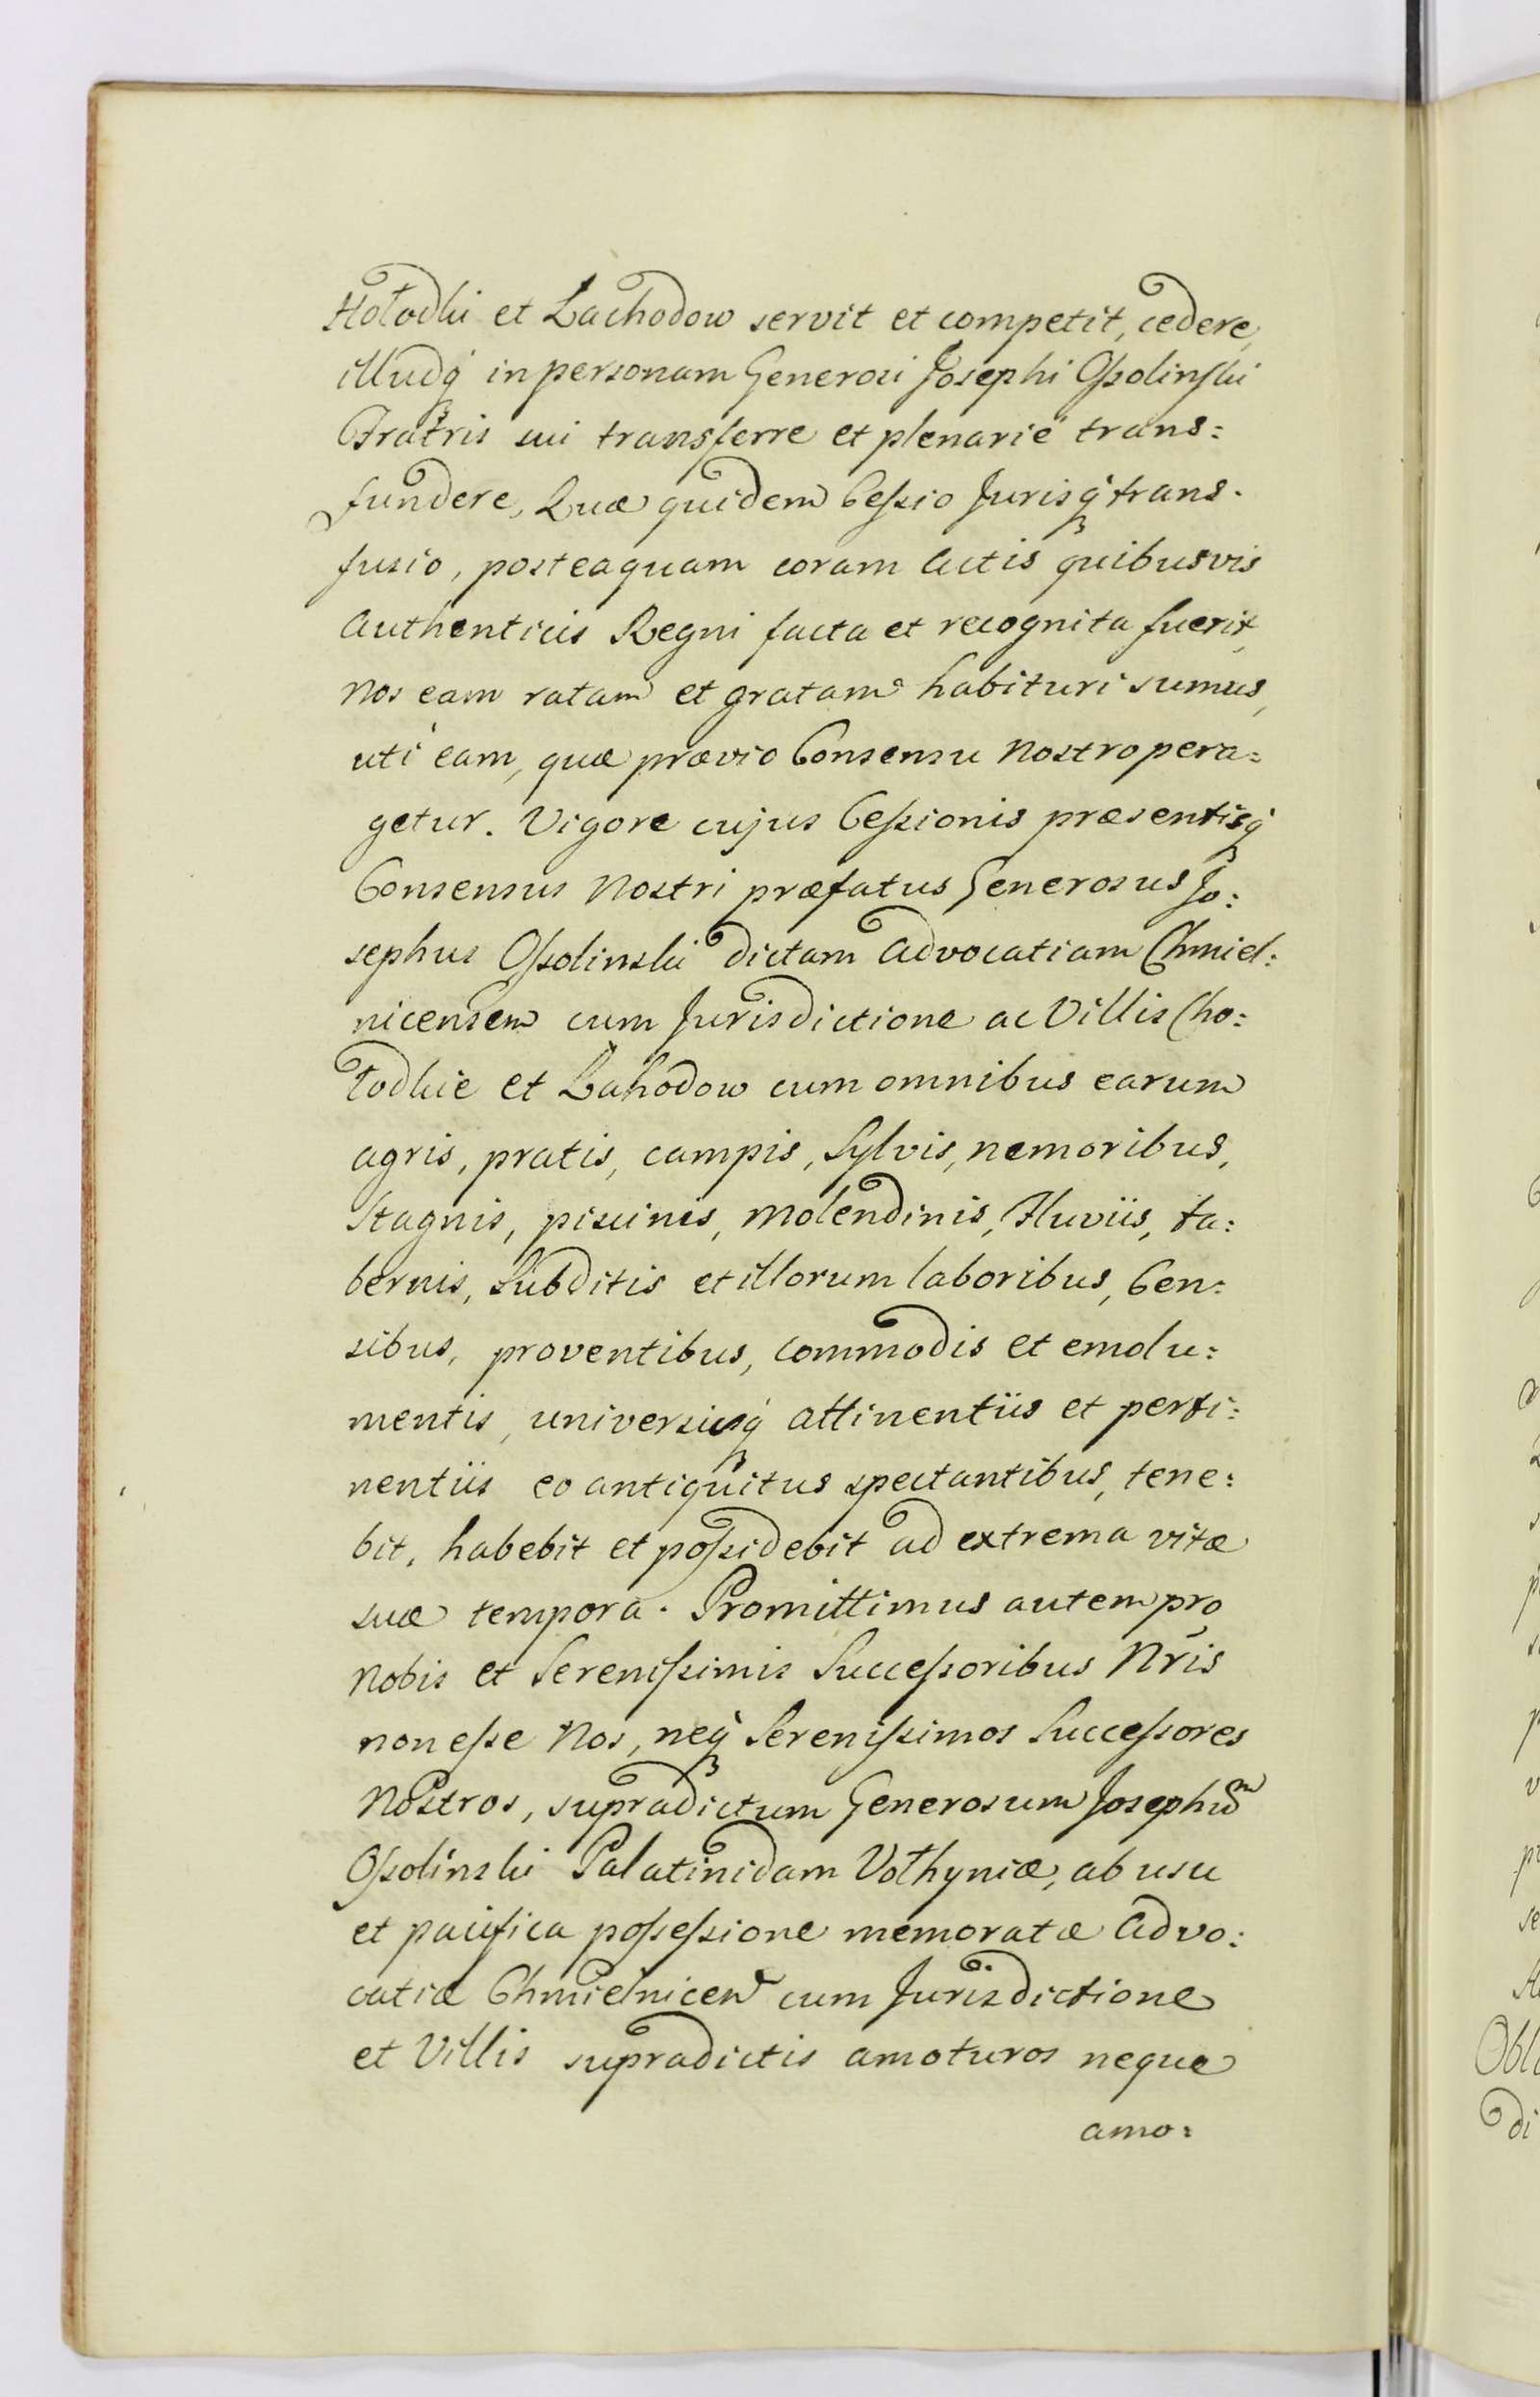 Hołodki et Lachodow servit et competit, cedere,
illudq́ in personam Generosi Josephi Ossolinski
Fratris sui transferre et plenariè trans=
fundere, Quæ quidem Cessio Jurisq́ trans=
fusio, posteaquam coram Actis quibusvis
Authenticis Regni facta et recognita fuerit,
Nos eam ratam et gratam habituri sumus,
uti eam, quæ prævio Consensu Nostro pera=
getur. Vigore cujus Cessionis præsentisq́
Consensus Nostri præfatus Generosus Jo=
sephus Ossolinski dictam Advocatiam Chmiel=
nicensem cum Jurisdictione ac Villis Cho=
łodkie et Lahodow cum omnibus earum
agris, pratis, campis, Sylvis, nemoribus,
Stagnis, piscinis, Molendinis, Fluviis, ta=
bernis, Subditis et illorum laboribus, Cen=
sibus, proventibus, commodis et emolu=
mentis, universisq́ attinentiis et perti=
nentiis eo antiquitus spectantibus, tene=
bit, habebit et possidebit ad extrema vitæ
suæ tempora. Promittimus autem pro
Nobis et Serenissimis Successoribus Nris
non esse Nos, neq́ Serenissimos Successores
Nostros, supradictum Generosum Josephum
Ossolinski Palatinidam Vołhyniæ, ab usu
et pacifica possessione memoratæ Advo=
catiæ Chmielnicen cum Jurisdictione
et Villis supradictis amoturos neque
amo=